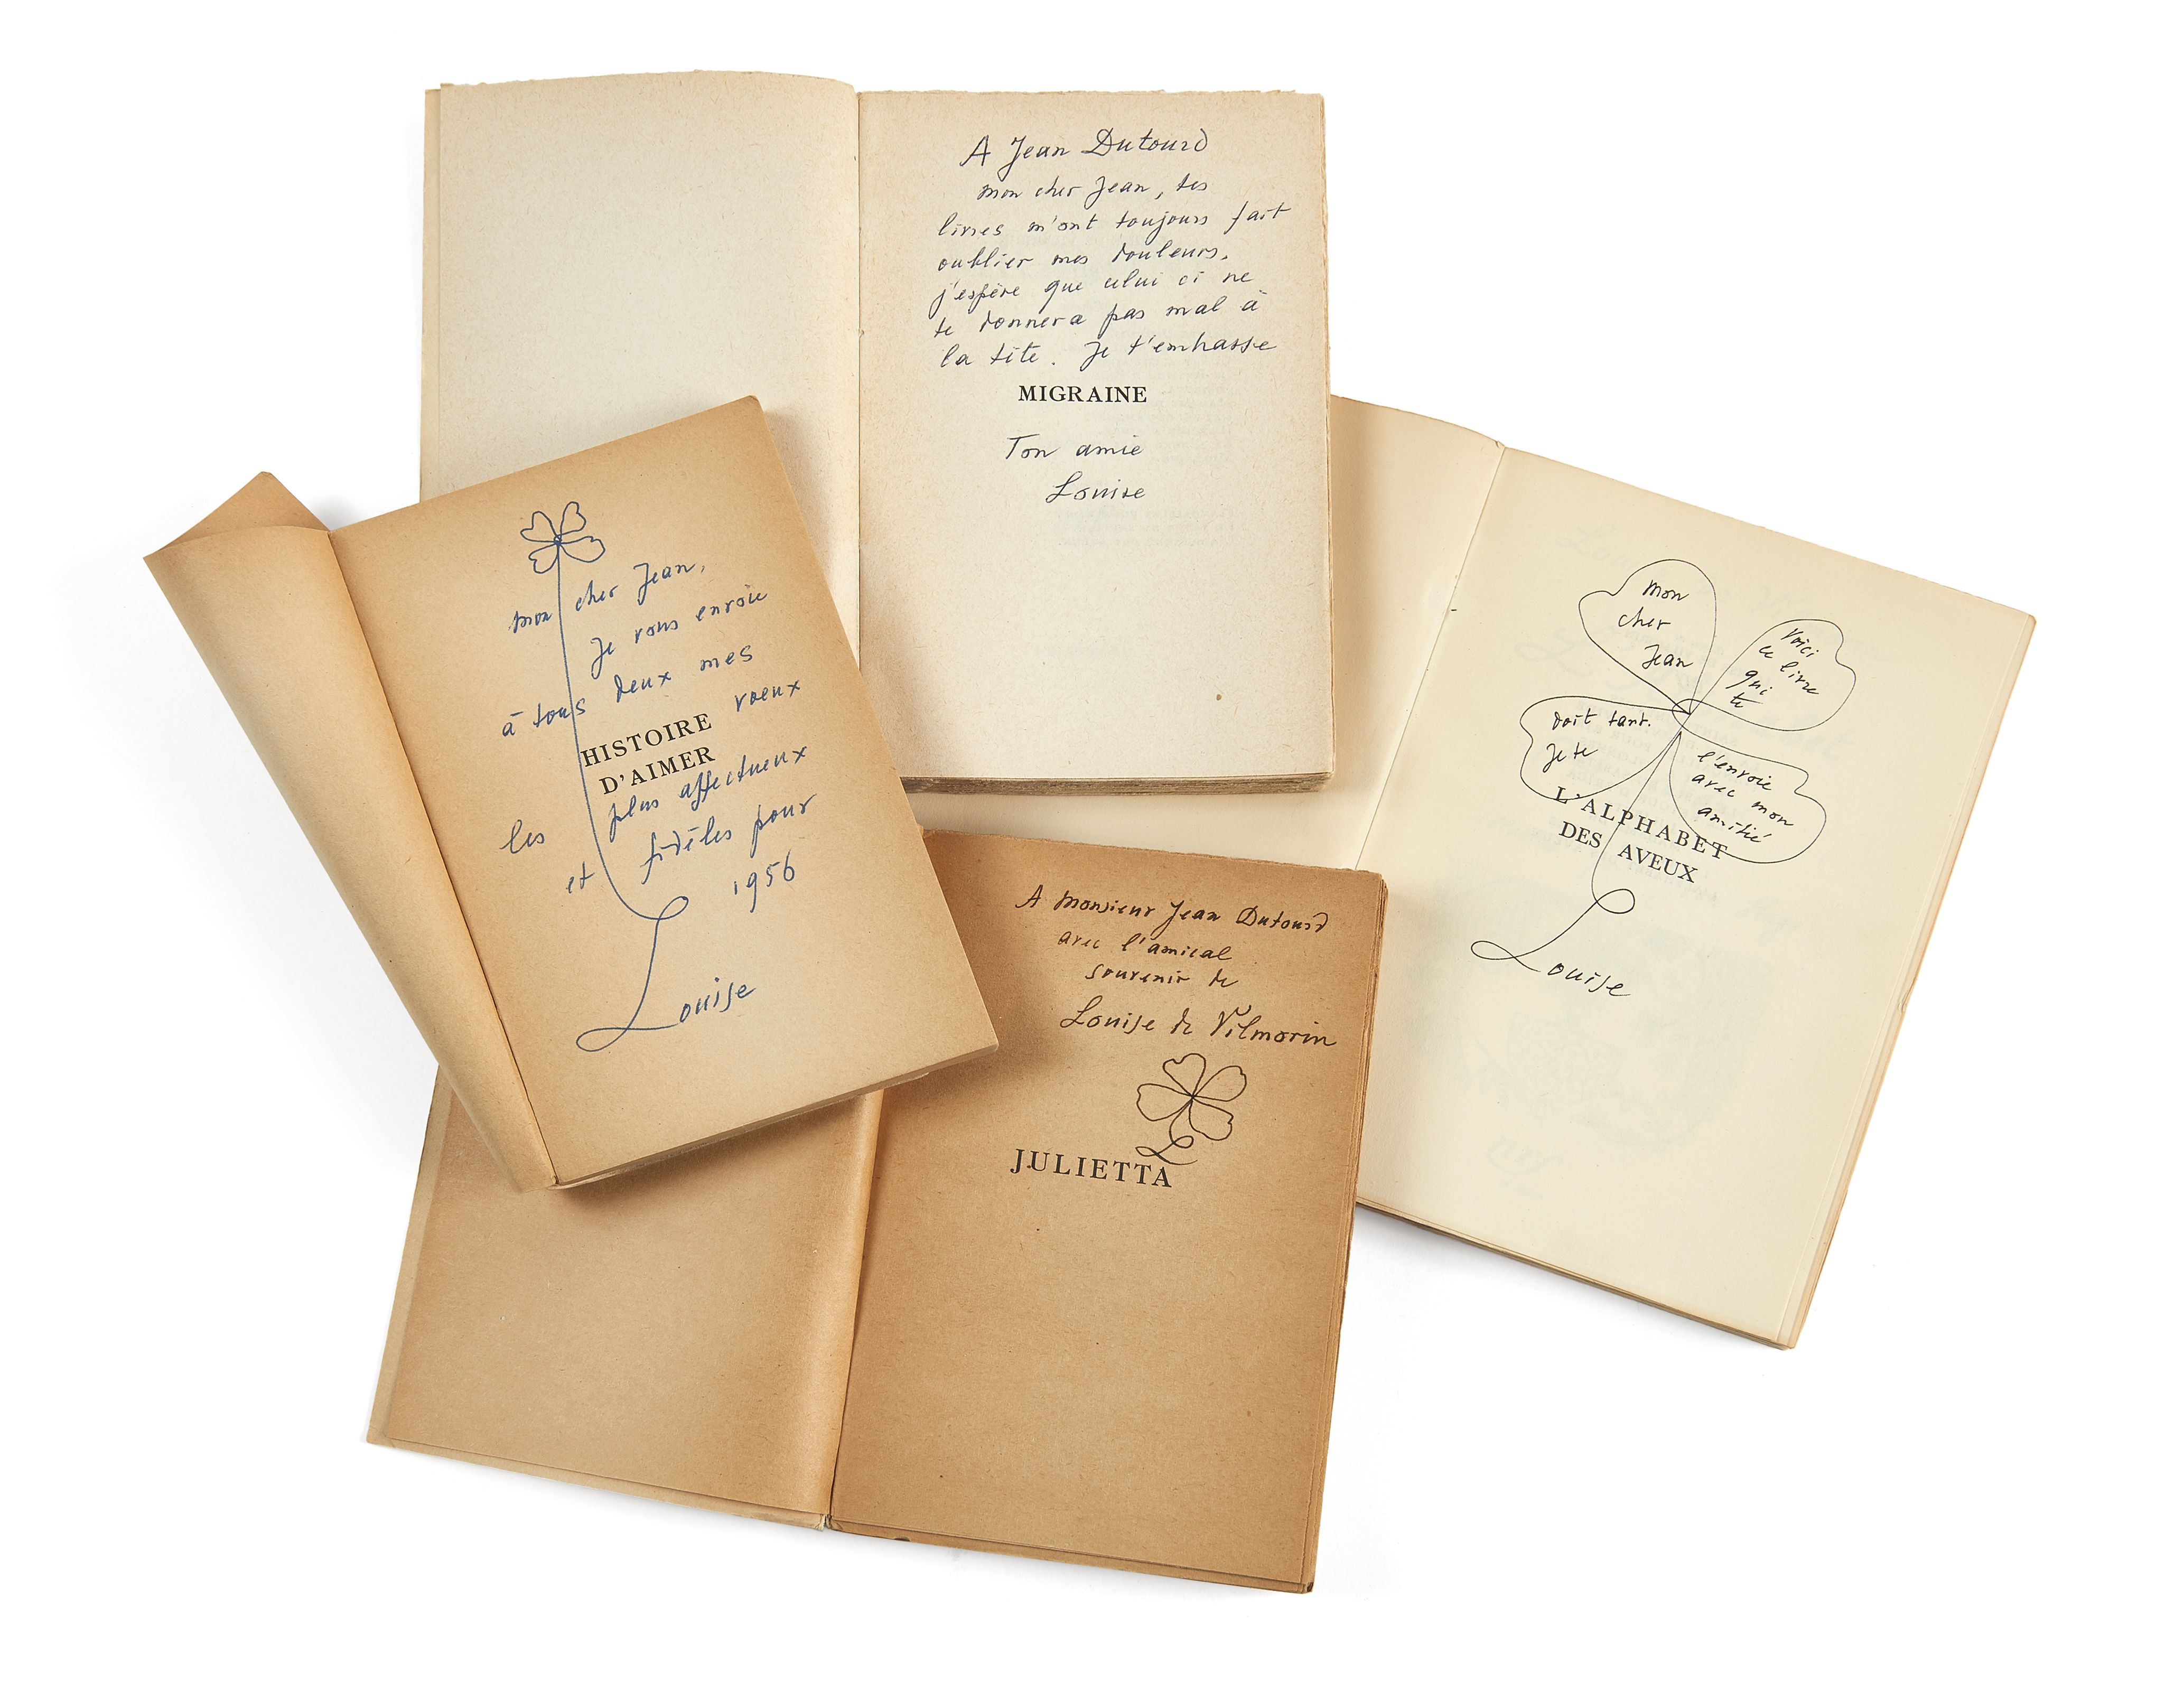 A Jean Dutourd
mon cher Jean, tes
livres m'ont toujours fait
oublier mes douleurs,
j'espère que celui ci ne
te donnera pas mal à
la tête. Je t'embrasse
MIGRAINE
Ton amie
Louise
mon cher Jean,
Je vous envoie
à tous deux mes
vœux
HISTOIRE
D'AIMER
les plus affectueux
et fidèles pour
1956
Louise
mon
cher
Jean
Voici
ce livre
qui
te
doit tant.
Je te
l'envoie
avec mon
amitié
L'ALPHABET
DES AVEUX
Louise
A Monsieur Jean Dutourd
avec l'amical
souvenir de
Louise de Vilmorin
L
JULIETTA